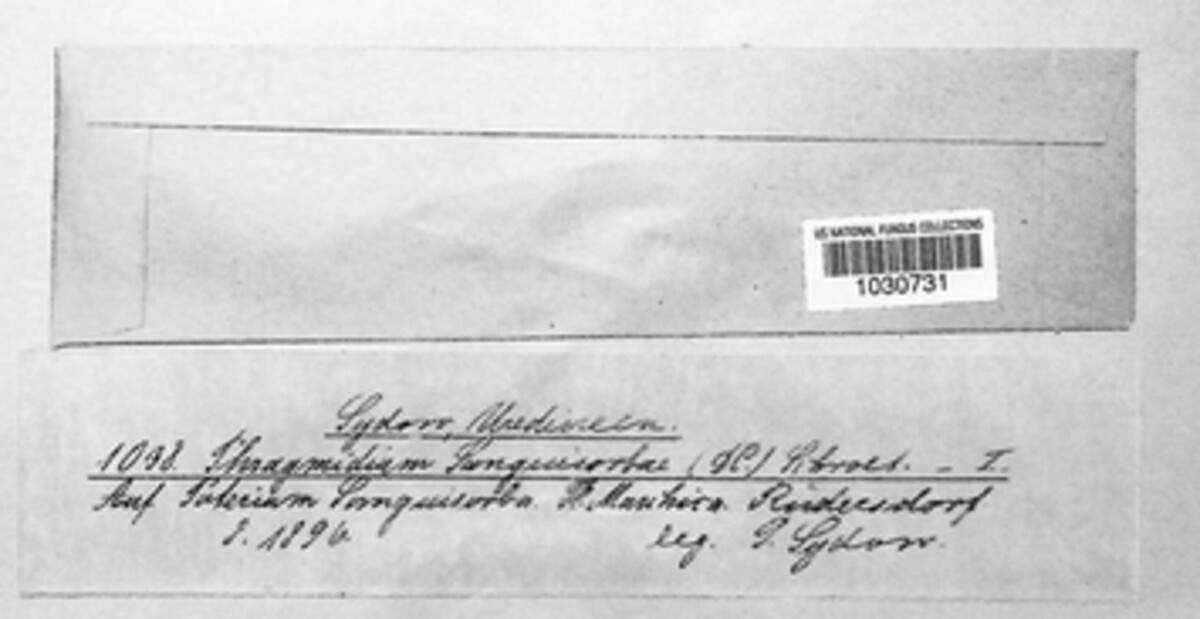 US NATIONAL FUNGUS COLLECTIONS
1030731
Sydow, Uredineen.
1098. Phragmidium Sanguisorbae (DC) Schroet. - I.
Auf Poterium Sanguisorba. Rüdersdorf
1896. leg. P. Sydow.